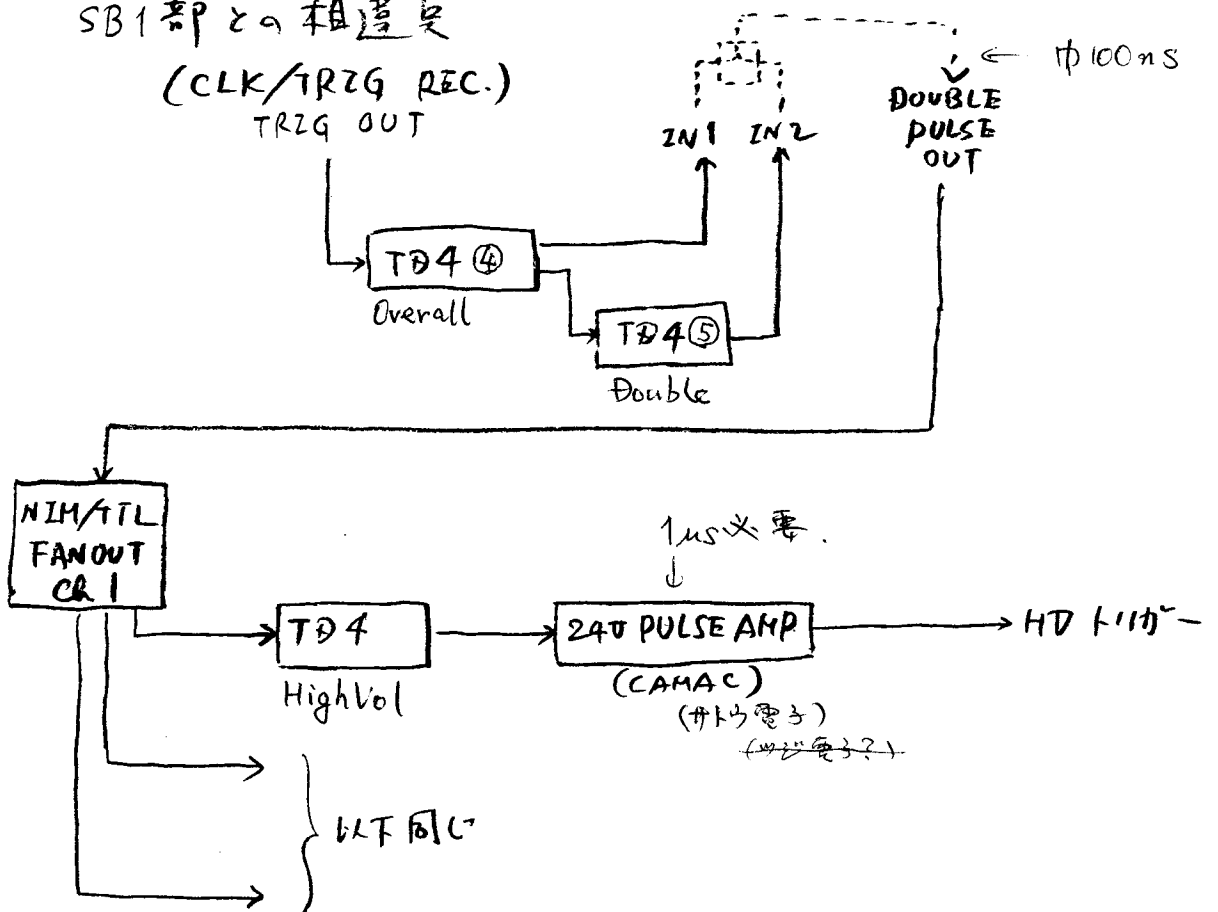 SB1部との相違点
(CLK/TRIG REC.)
TRIG OUT
IN1 IN2
DOUBLE
PULSE
OUT
← 巾100ns
TD4 ④
Overall
TD4 ⑤
Double
NIM/TTL
FANOUT
Ch 1
TD4
HighVol
1μs必要.
↓
24V PULSE AMP
(CAMAC)
(サトウ電子)
(ツジ電子?)
HD トリガー
以下同じ